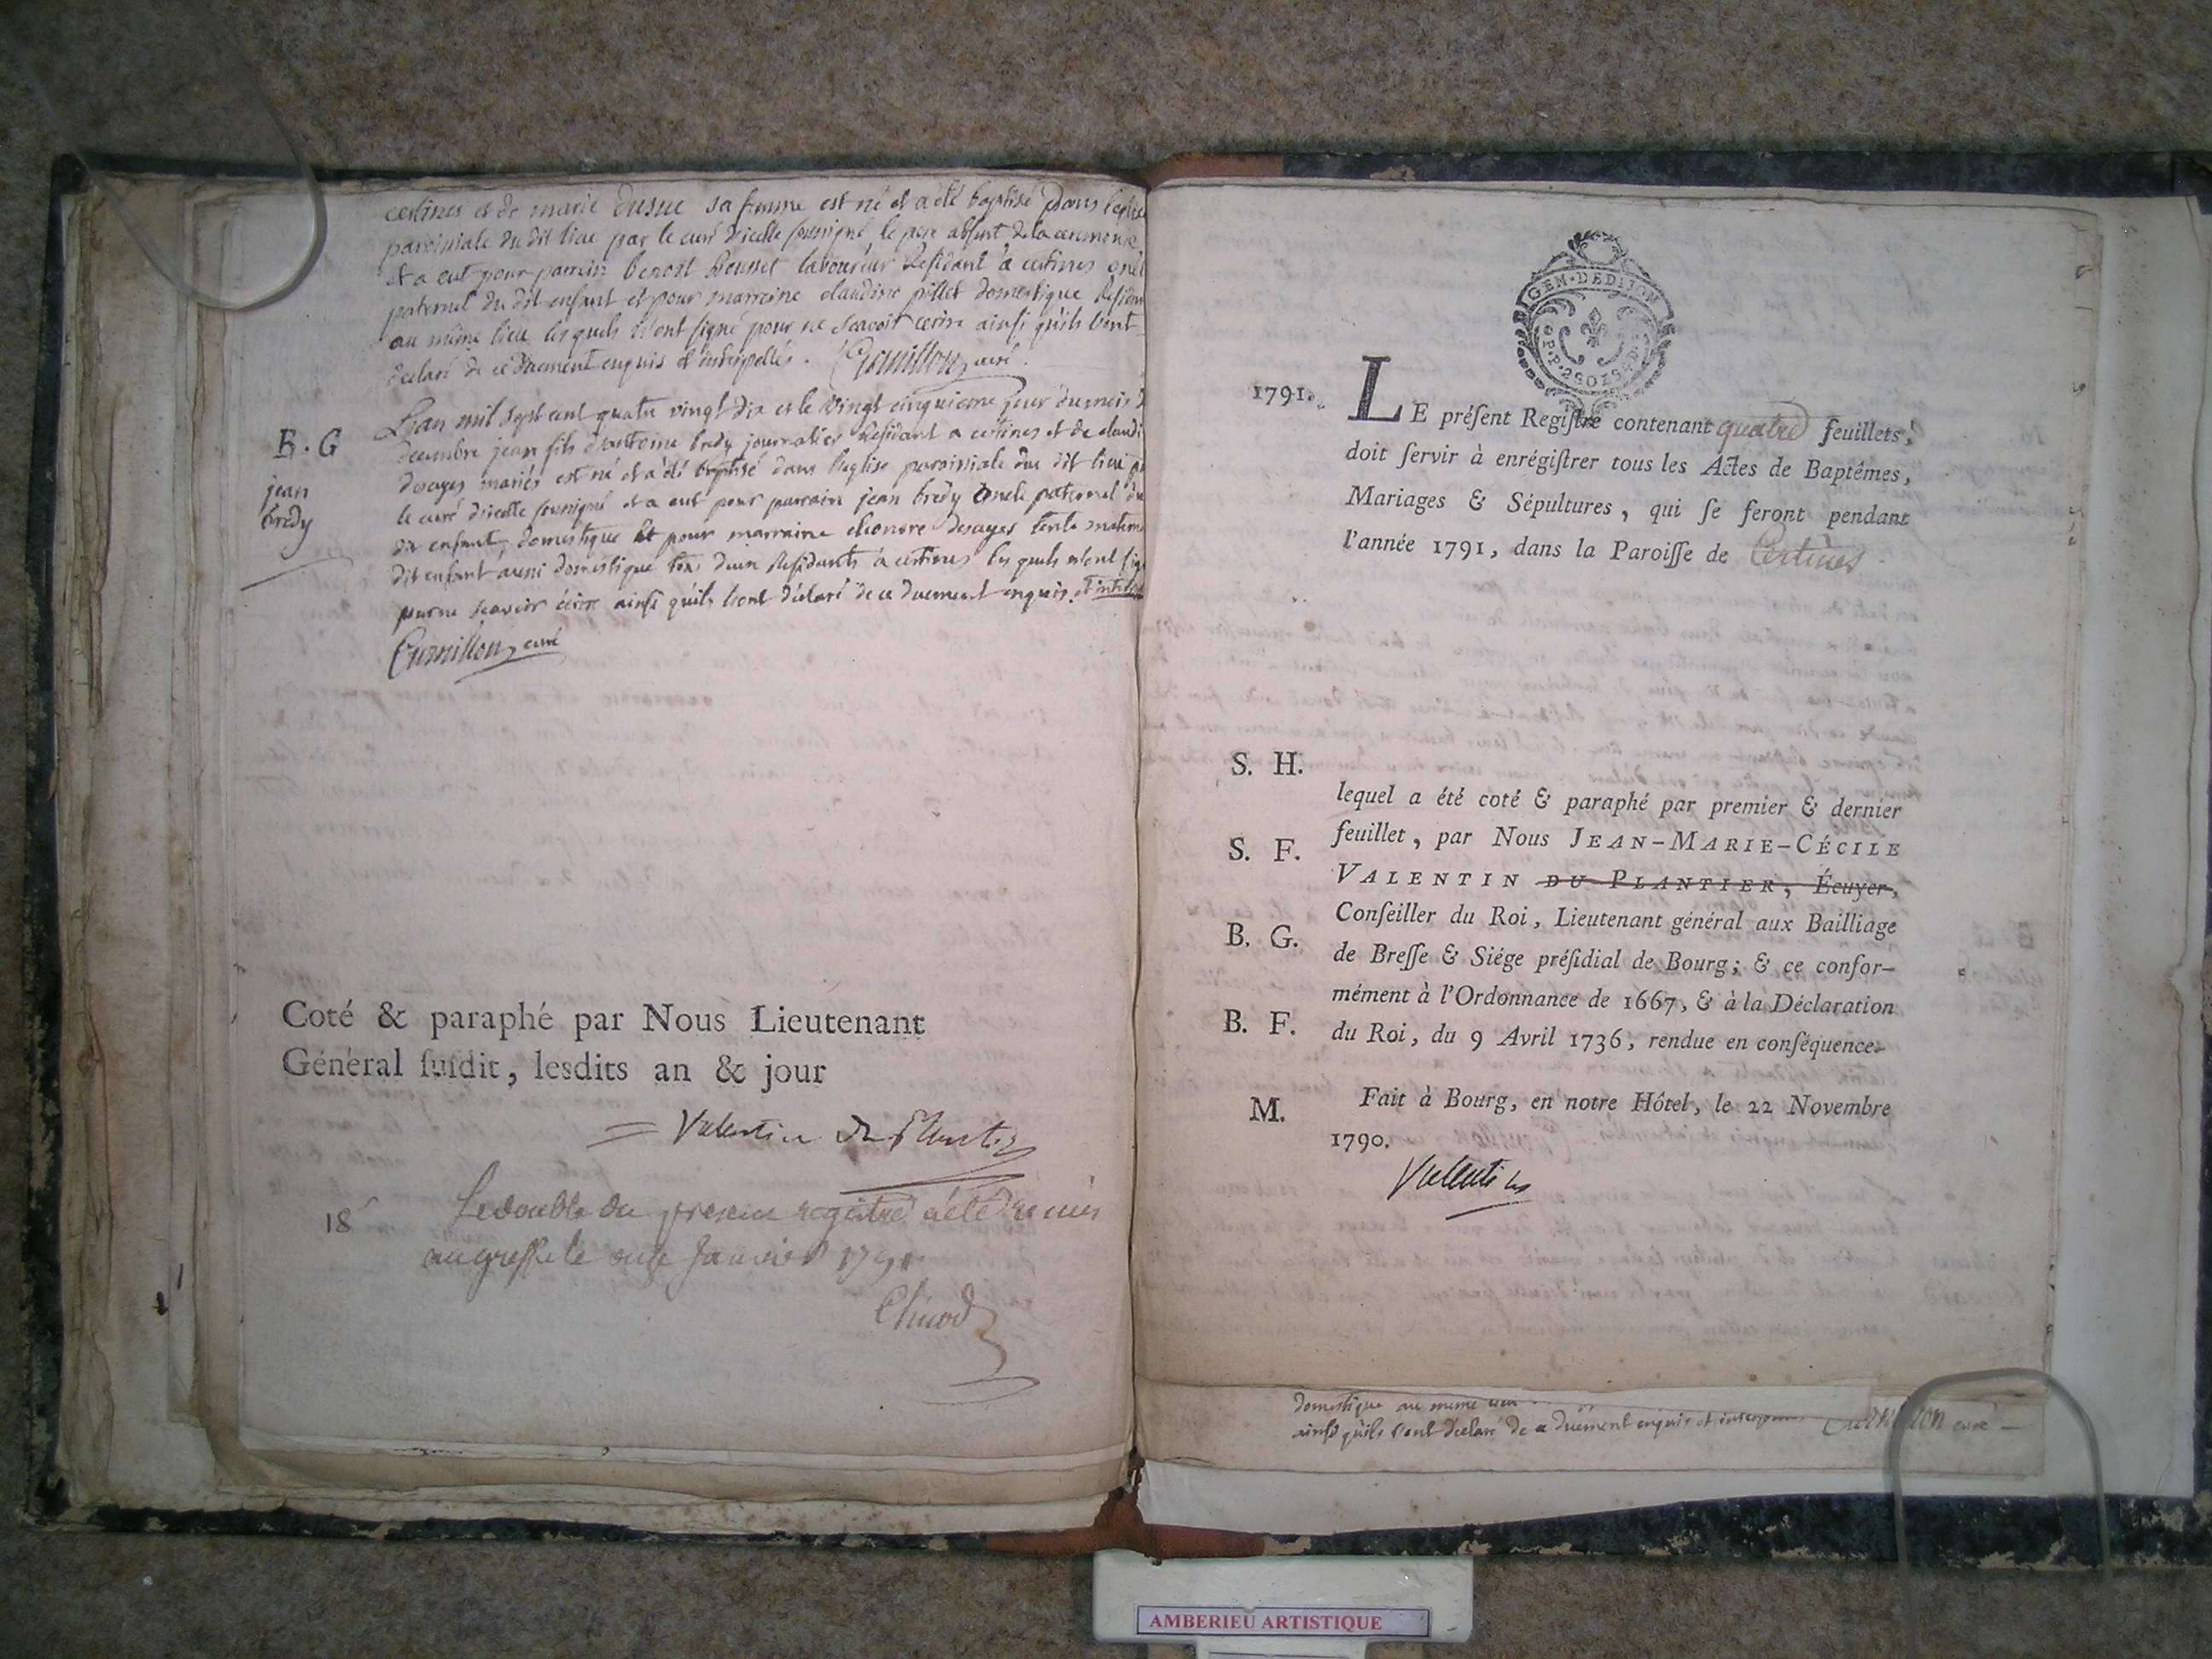 certines et de marie dusuc sa femme est né et a été baptisé dans l'eglise
paroissiale du dit lieu par le curé d'icelle soussigné le pere absent de la ceremonie
et a eut pour parrain benoit Rousset laboureur Residant a certines oncle
paternel du dit enfant et pour marraine claudine pillet domestique Residan
au même lieu les quels n'ont signé pour ne scavoir ecrire ainsi qu'ils l'ont
declaré de ce duement enquis et interpellés. curé.
L'an mil sept cent quatre vingt dix et le vingt cinquieme jour du mois d
B. G
decembre jean fils d'antoine bredy journalier Residant a certines et de claudi
jean
desayes mariés est né et a été baptisé dans l'eglise paroissiale du dit lieu p
bredy
le curé d'icelle soussigné et a eut pour parrain jean bredy oncle paternel du
dit enfant, domestique et pour marraine eleonore desayes tente matern
dit enfant aussi domestique tous deux Residants a certines les quels n'ont sig
pour ne scavoir ecrire ainsi qu'ils l'ont déclaré de ce duement enquis et
curé
Coté & paraphé par Nous Lieutenant
Général susdit, lesdits an & jour
Valentin Du Plantier
18
Le double du present registre a été Remis
au greffe le onze Janvier 1791
GEN·DEDIJON
1791.
LE présent Registre contenant quatre feuillets,
doit servir à enrégistrer tous les Actes de Baptêmes,
Mariages & Sépultures, qui se feront pendant
l'année 1791, dans la Paroisse de Certines
S. H.
lequel a été coté & paraphé par premier & dernier
feuillet, par Nous JEAN-MARIE-CÉCILE
S. F.
VALENTIN DU PLANTIER, Écuyer,
Conseiller du Roi, Lieutenant général aux Bailliage
B. G.
de Bresse & Siége présidial de Bourg; & ce confor-
mément à l'Ordonnance de 1667, & à la Déclaration
B. F.
du Roi, du 9 Avril 1736, rendue en conséquence.
M.
Fait à Bourg, en notre Hôtel, le 22 Novembre
1790.
Valentin
domestique au meme lieu
ainsi qu'ils l'ont declaré de ce duement enquis et curé
AMBERIEU ARTISTIQUE